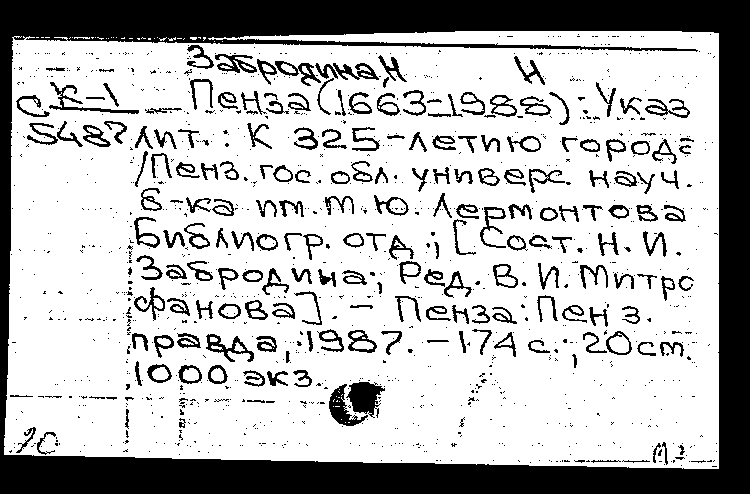 Забродина, Н И
С К-1 Пенза (1663-1988): Указ
5487 лит.: К 325-летию города
/Пенз. гос. обл. универс. науч.
б-ка им. М. Ю. Лермонтова
Библиогр. отд.; [Сост. Н. И.
Забродина; Ред. В. И. Митро
фанова]. – Пенза: Пенз.
правда, 1987. – 174 с.; 20 см.
1000 экз.